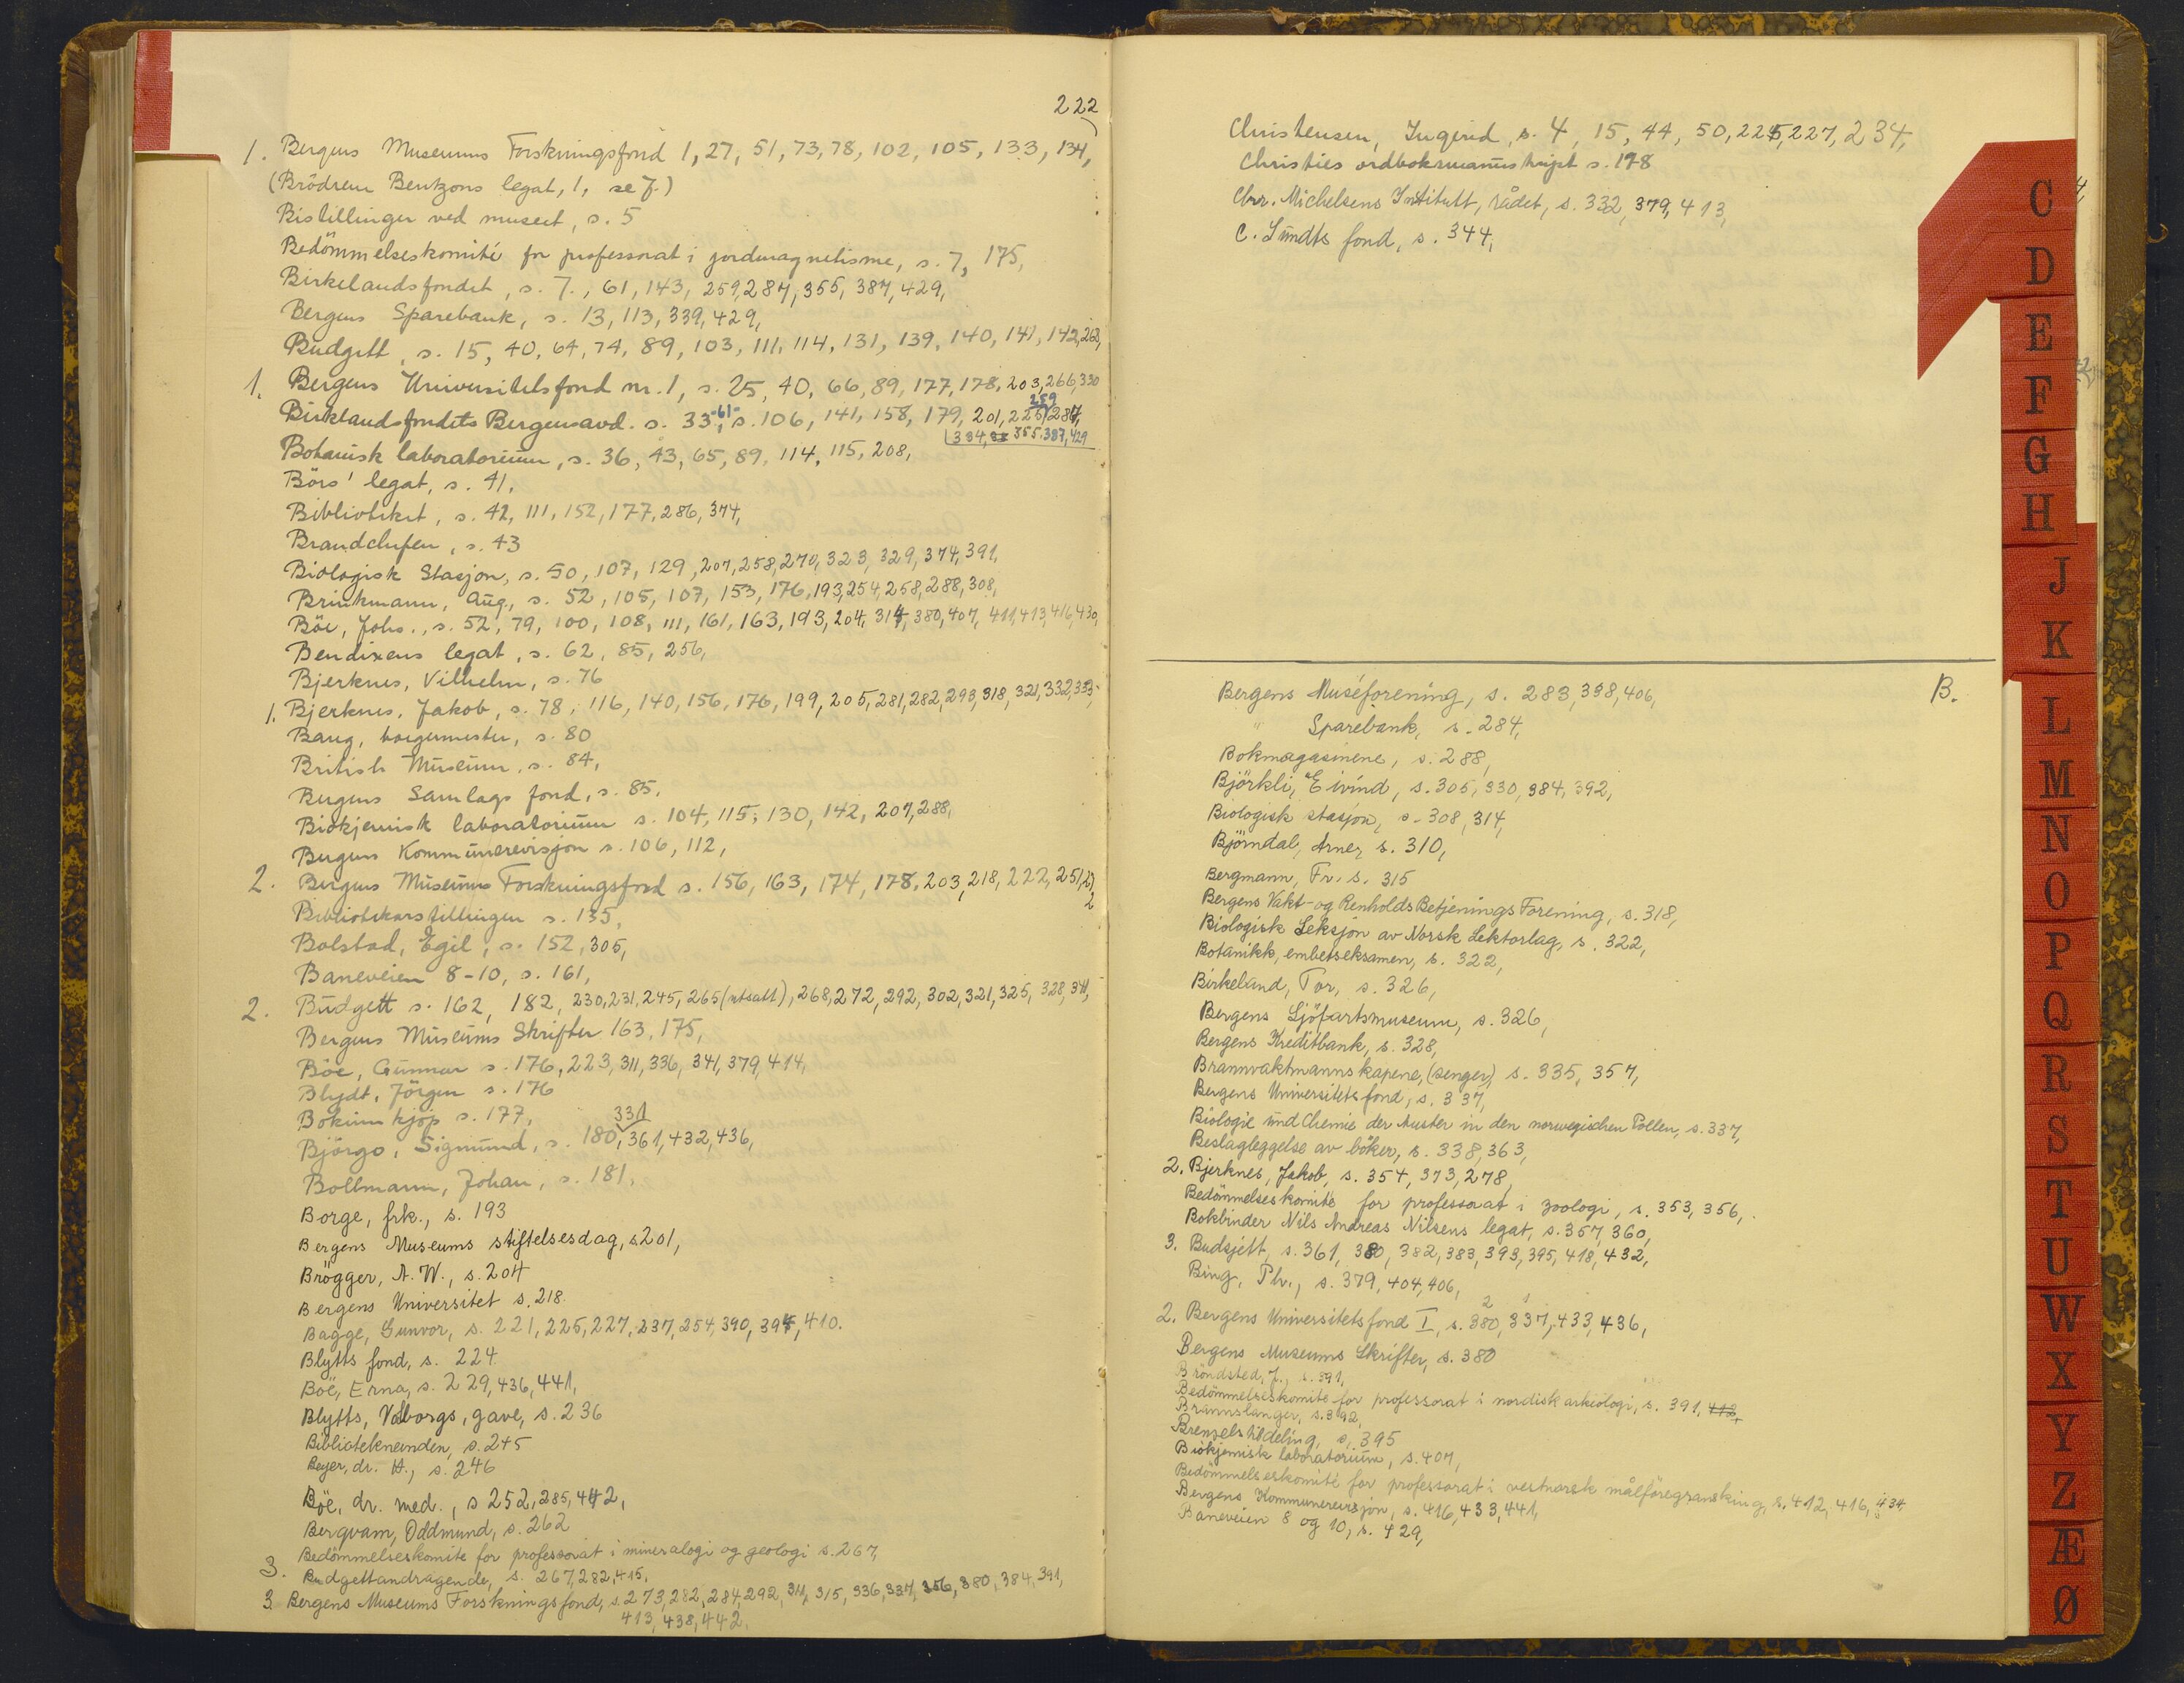 222
1. Bergens Museums Forskningsfond 1, 27, 51, 73, 78, 102, 105, 133, 134,
(Brödrene Bentzons legat, 1, se J.)
Bistillinger ved museet, s. 5
Bedömmelseskomité for professorat i jordmagnetisme, s. 7, 175,
Birkelandsfondet, s. 7., 61, 143, 259, 287, 355, 387, 429,
Bergens Sparebank, s. 13, 113, 339, 429,
Budgett, s. 15, 40, 64, 74, 89, 103, 111, 114, 131, 139, 140, 141, 142, 263,
1. Bergens Universitetsfond nr. 1, s. 25, 40, 66, 89, 177, 178, 203, 266, 330
259
Birklandsfondets Bergensavd. s. 33, -61- s. 106, 141, 158, 179, 201, 225, 287,
334, 355, 387, 429
Botanisk laboratorium, s. 36, 43, 65, 89, 114, 115, 208,
Börs' legat, s. 41,
Biblioteket, s. 42, 111, 152, 177, 286, 374,
Brandchefen, s. 43
Biologisk Stasjon, s. 50, 107, 129, 207, 258, 270, 323, 329, 374, 391,
Brinkmann, Aug., s. 52, 105, 107, 153, 176, 193, 254, 258, 288, 308,
Böe, Johs., s. 52, 79, 100, 108, 111, 161, 163, 193, 204, 314, 380, 407, 411, 413, 416, 430,
Bendixens legat, s. 62, 85, 256,
Bjerknes, Vilhelm, s. 76
1. Bjerknes, Jakob, s. 78, 116, 140, 156, 176, 199, 205, 281, 282, 293, 318, 321, 332, 333,
Barug, borgermester, s. 80
British Museum, s. 84,
Bergens Samlags fond, s. 85,
Biokjemisk laboratorium s. 104, 115, 130, 142, 207, 288,
Bergens Kommunerevisjon s. 106, 112,
2. Bergens Museums Forskningsfond s. 156, 163, 174, 178, 203, 218, 222, 251,
Bibliotekarstillingen s. 135,
Bolstad, Egil, s. 152, 305,
Baneveien 8-10, s. 161,
2. Budgett s. 162, 182, 230, 231, 245, 265 (utsatt), 268, 272, 292, 302, 321, 325, 328, 341,
Bergens Museums Skrifter 163, 175,
Böe, Gunnar s. 176, 223, 311, 336, 341, 379, 414,
Blydt, Jörgen s. 176
Bokinnkjöp s. 177,
331
Björgo, Sigmund, s. 180, 361, 432, 436,
Bollmann, Johan, s. 181,
Borge, frk., s. 193
Bergens Museums stiftelsesdag, s. 201,
Brögger, A. W., s. 204
Bergens Universitet s. 218
Bagge, Gunvor, s. 221, 225, 227, 237, 254, 390, 394, 410.
Blytts fond, s. 224
Böe, Erna, s. 229, 436, 441,
Blytts, Valborgs, gave, s. 236
Biblioteknemnden, s. 245
Beyer, dr. A., s. 246
Böe, dr. med., s 252, 285, 442,
Bergvam, Oddmund, s. 262
Bedömmelseskomite for professorat i mineralogi og geologi s. 267,
3. Budgettandragende, s. 267, 282, 415,
3 Bergens Museums Forskningsfond, s. 273, 282, 284, 292, 311, 315, 336, 337, 356, 380, 384, 391,
413, 438, 442.
Christensen, Ingerid, s. 4, 15, 44, 50, 225, 227, 234,
Christies ordboksmanuskript s. 178
Chr. Michelsens Institutt, rådet, s. 332, 379, 413,
C. Sundts fond, s. 344,
B.
Bergens Muséforening, s. 283, 338, 406,
" Sparebank, s. 284,
Bokmagasinene, s. 288,
Björkli, Eivind, s. 305, 330, 384, 392,
Biologisk stasjon, s. 308, 314,
Björndal, Arne, s. 310,
Bergmann, Fr. s. 315
Bergens Vakt- og RenholdsBetjenings Forening, s. 318,
Biologisk Seksjon av Norsk Lektorlag, s. 322,
Botanikk, embetseksamen, s. 322,
Birkeland, Tor, s. 326,
Bergens Sjöfartsmuseum, s. 326,
Bergens Kreditbank, s. 328,
Brannvaktmannskapene, (senger), s. 335, 357,
Bergens Universitetsfond, s. 337,
Biologie und Chemie der Auster in den norwegischen Pollen, s. 337,
Beslagleggelse av böker, s. 338, 363,
2. Bjerknes, Jakob, s. 354, 373, 278,
Bedömmelseskomité for professorat i zoologi, s. 353, 356,
Bokbinder Nils Andreas Nilsens legat, s. 357, 360,
3. Budsjett, s. 361, 380, 382, 383, 393, 395, 418, 432,
Bing, Ph., s. 379, 404, 406,
2 1
2. Bergens Universitetsfond I, s. 380, 337, 433, 436,
Bergens Museums Skrifter, s. 380
Bröndsted, J., s. 391,
Bedömmelseskomité for professorat i nordisk arkeologi, s. 391, 412,
Brannslanger, s. 392,
Brenselstildeling, s. 395
Biokjemisk laboratorium, s. 407,
Bedömmelseskomité for professorat i vestnorsk målföregransking, s. 412, 416, 434
Bergens Kommunerevisjon, s. 416, 433, 441,
Baneveien 8 og 10, s. 429,
C
D
E
F
G
H
J
K
L
M
N
O
P
Q
R
S
T
U
W
X
Y
Z
Æ
Ø